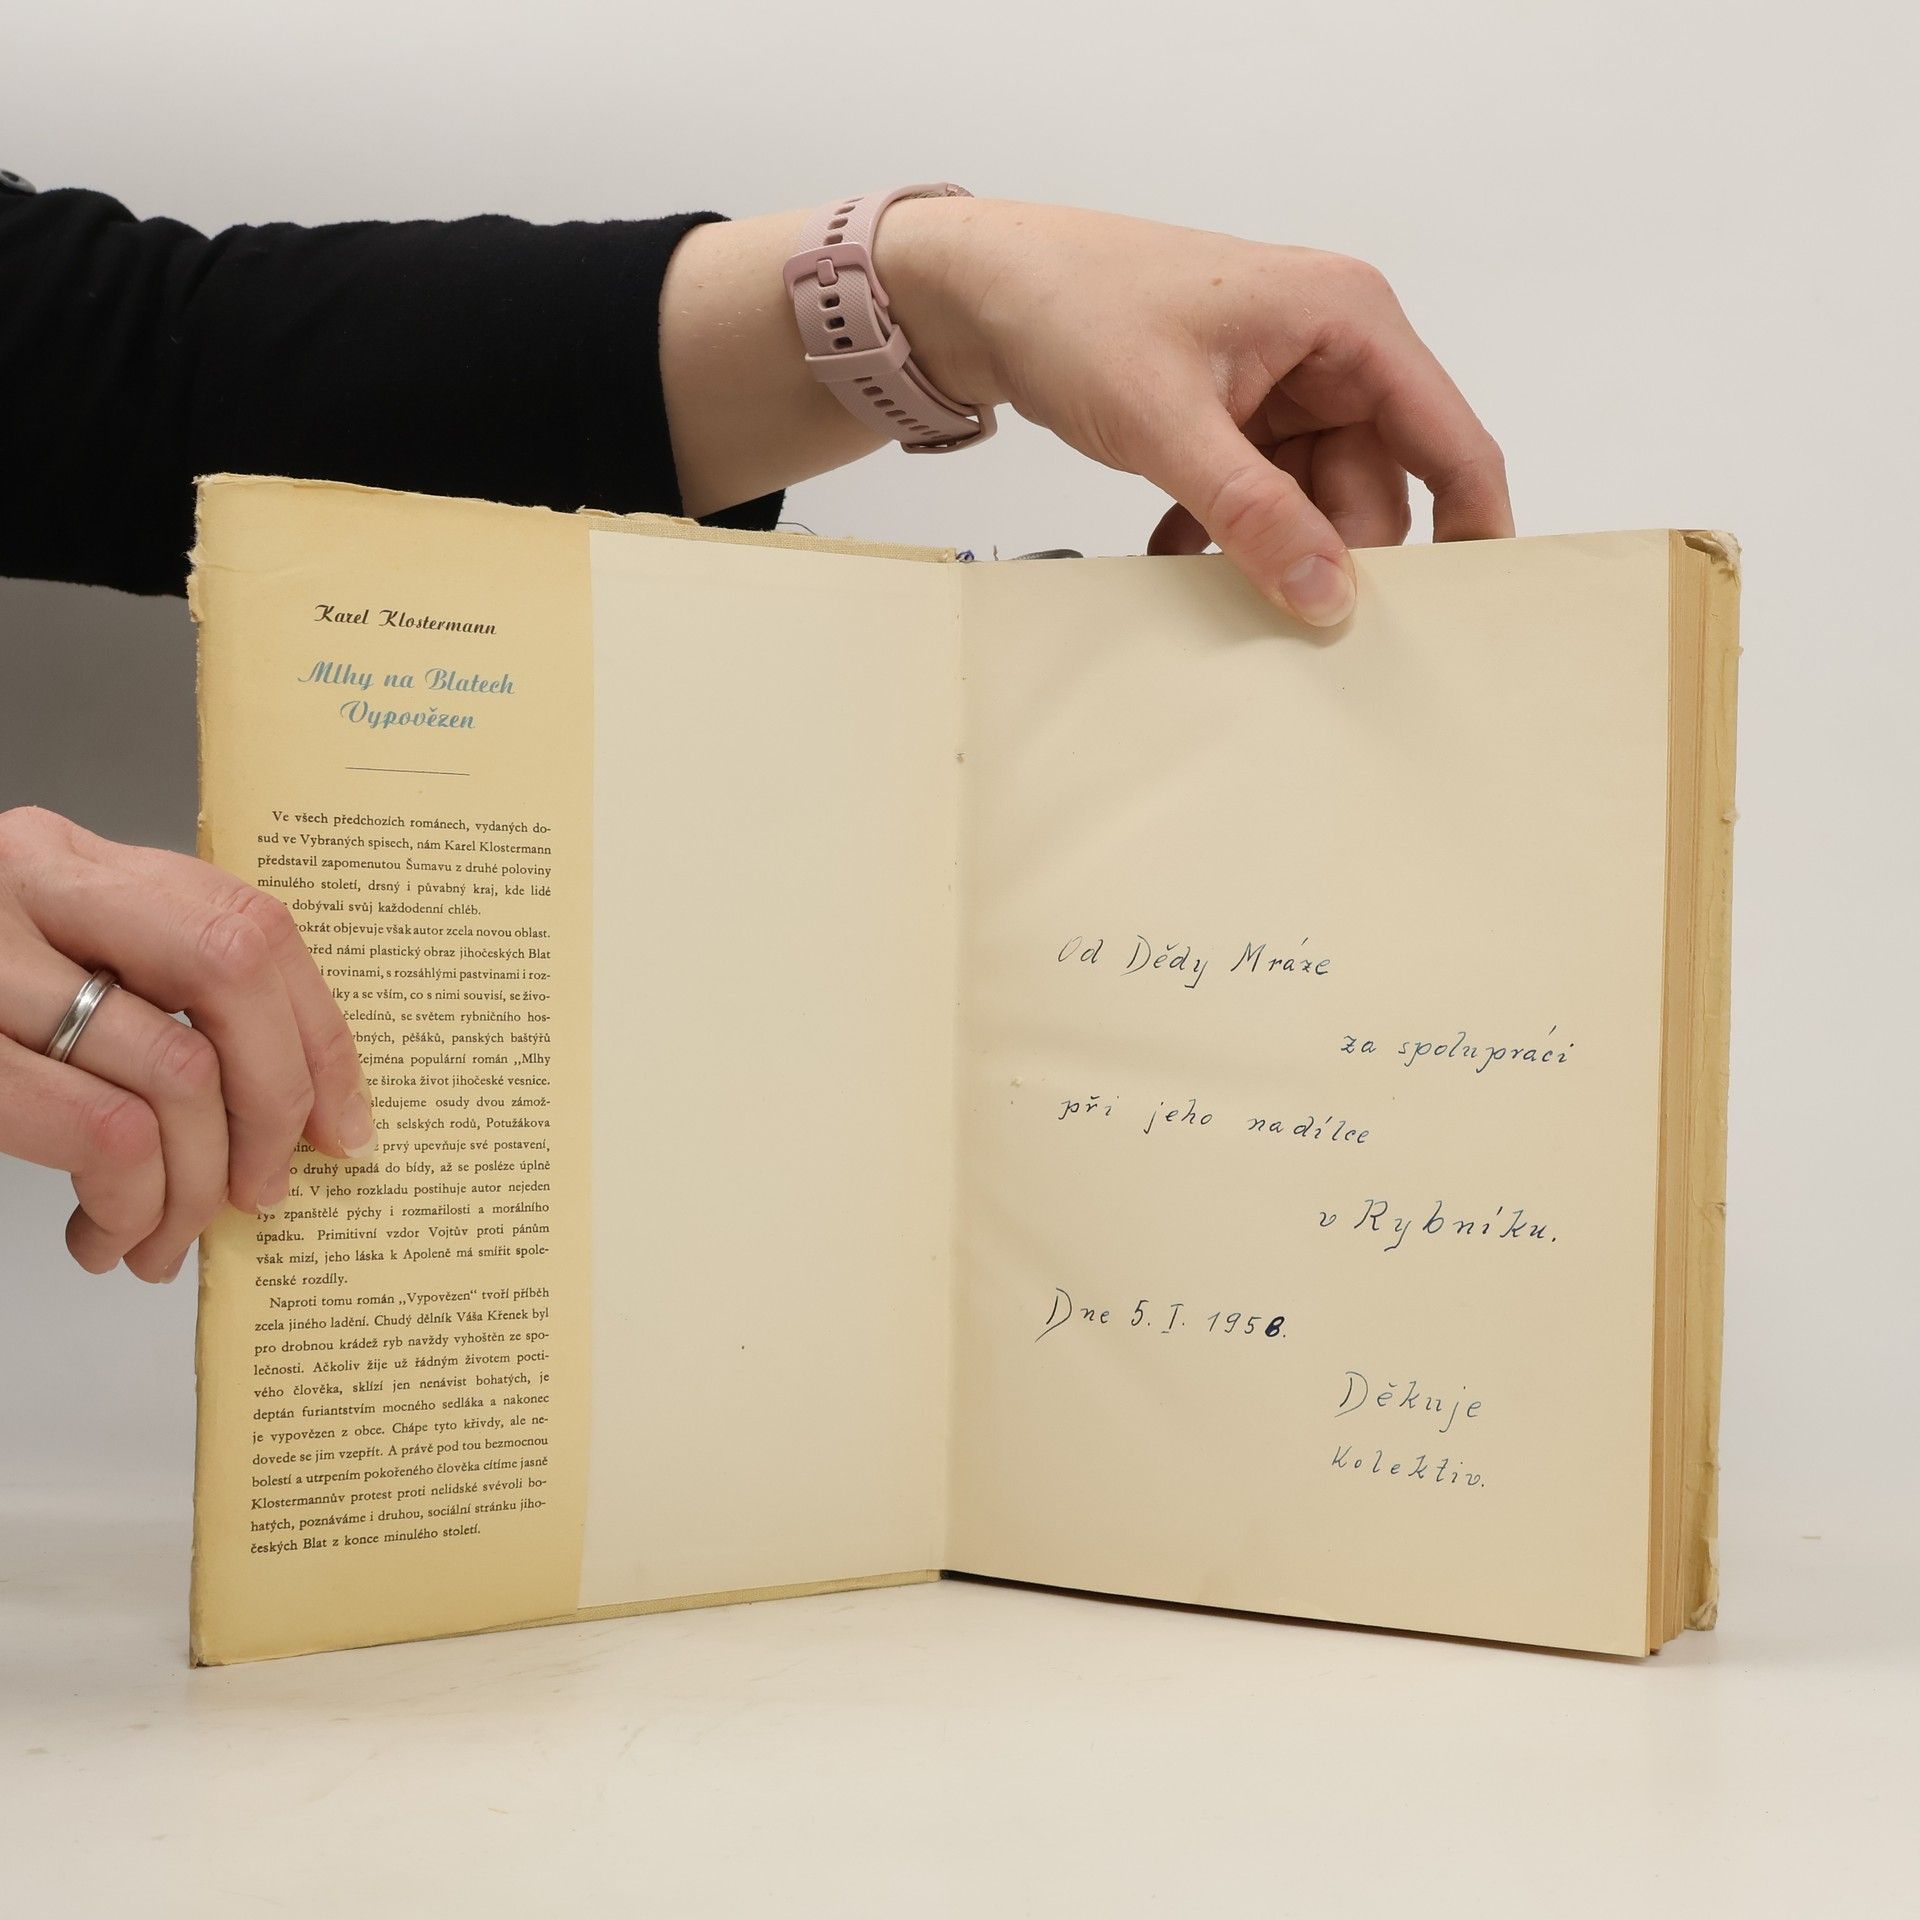 Karel Klostermann
Mlhy na Blatech
Vypovězen
Ve všech předchozích románech, vydaných do-
sud ve Vybraných spisech, nám Karel Klostermann
představil zapomenutou Šumavu z druhé poloviny
minulého století, drsný i půvabný kraj, kde lidé
dobývali svůj každodenní chléb.
objevuje však autor zcela novou oblast.
před námi plastický obraz jihočeských Blat
i rovinami, s rozsáhlými pastvinami i roz-
a se vším, co s nimi souvisí, se živo-
čeledínů, se světem rybničního hos-
pěšáků, panských baštýřů
Zejména populární román „Mlhy
ze široka život jihočeské vesnice.
sledujeme osudy dvou zámož-
selských rodů, Potužákova
prvý upevňuje své postavení,
druhý upadá do bídy, až se posléze úplně
V jeho rozkladu postihuje autor nejeden
rys zpanštělé pýchy i rozmařilosti a morálního
úpadku. Primitivní vzdor Vojtův proti pánům
však mizí, jeho láska k Apoleně má smířit spole-
čenské rozdíly.
Naproti tomu román „Vypovězen“ tvoří příběh
zcela jiného ladění. Chudý dělník Váša Křenek byl
pro drobnou krádež ryb navždy vyhoštěn ze spo-
lečnosti. Ačkoliv žije už řádným životem pocti-
vého člověka, sklízí jen nenávist bohatých, je
deptán furiantstvím mocného sedláka a nakonec
je vypovězen z obce. Chápe tyto křivdy, ale ne-
dovede se jim vzepřít. A právě pod tou bezmocnou
bolestí a utrpením pokořeného člověka cítíme jasně
Klostermannův protest proti nelidské svévoli bo-
hatých, poznáváme i druhou, sociální stránku jiho-
českých Blat z konce minulého století.
Od Dědy Mráze
za spolupráci
při jeho nadílce
v Rybníku.
Dne 5. I. 1958.
Děkuje
Kolektiv.